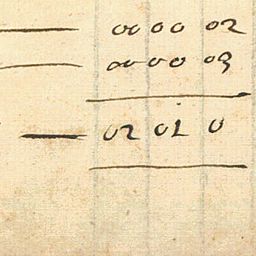 — 00 00 02
— 00 00 03
— 02 01 0